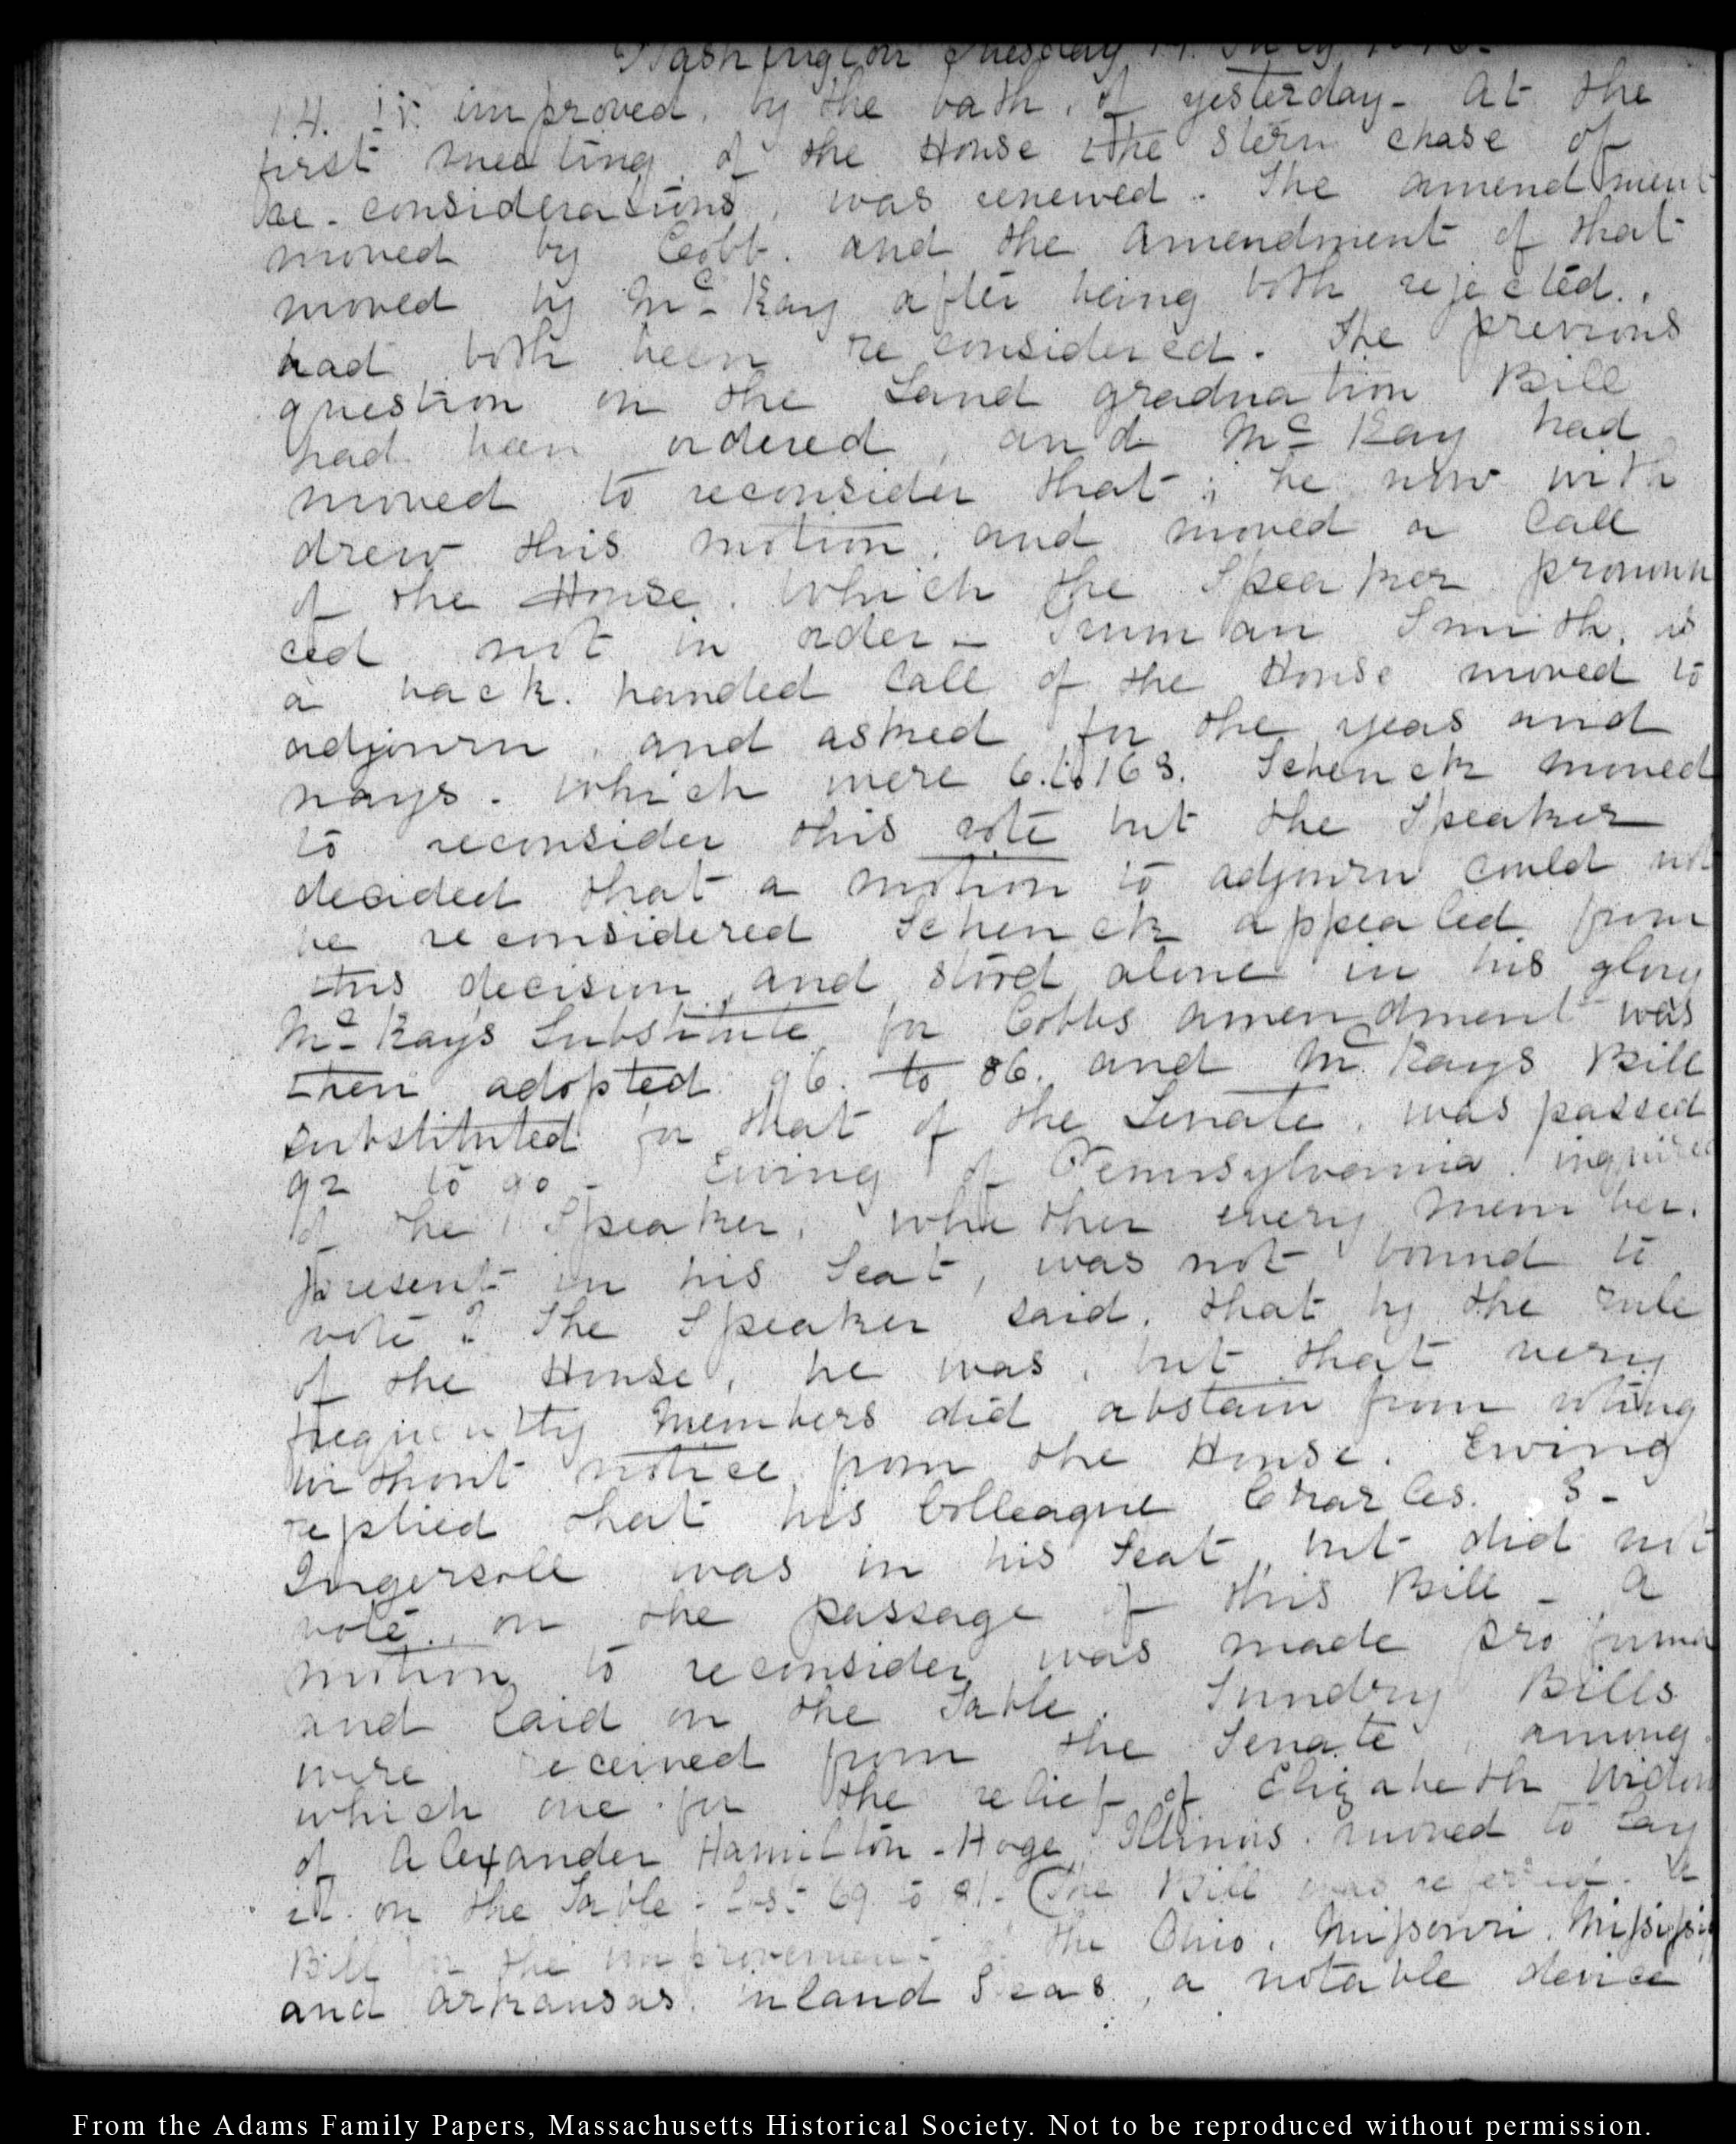 Washington Tuesday 14. July 1846.
14. IV. improved, by the bath, of yesterday - At the
first meeting, of the House the stern chase of
re-considerations, was renewed. The amendment
moved by Cobb. and the amendment of that
moved by Mc. Kay after being both rejected.,
had both been re considered. The previous
question on the Land graduation Bill
had been ordered, and Mc Kay had
moved to reconsider that; he now with
drew this motion, and moved a Call
of the House. Which the Speaker pronoun
ced not in order - Truman Smith, as
a back. handed Call of the House moved to
adjourn, and asked for the yeas and
nays. Which were 6. to 168. Schenck moved
to reconsider this vote but the Speaker
decided that a motion to adjourn could not
be reconsidered Schenck appealed from
this decision, and stood alone in his glory
Mc Kay's Substitute for Cobbs amendment was
then adopted. 96. to 86. and Mc Kays Bill
substituted for that of the Senate, was passed
92 to 90 - Ewing of Pennsylvania. inquired
of the Speaker, whether every member.
present in his Seat, was not bound to
vote? The Speaker said, that by the rule
of the House, he was, but that very
frequently members did abstain from voting
without notice from the House. Ewing
replied that his Colleague Charles. J-
Ingersoll was in his Seat, but did not
vote., on the passage of this Bill - A
motion to reconsider was made pro forma
and laid on the Table. Sundry Bills
were received from the Senate, among.
which one for the relief of Elizabeth Widow
of Alexander Hamilton - Hoge Illinois. moved to lay
it. on the Table - lost 69 to 91. (The Bill was referred. A
Bill for the improvement of the Ohio, Missouri, Missisippi
and Arkansas. inland Seas, a notable device
From the Adams Family Papers, Massachusetts Historical Society. Not to be reproduced without permission.